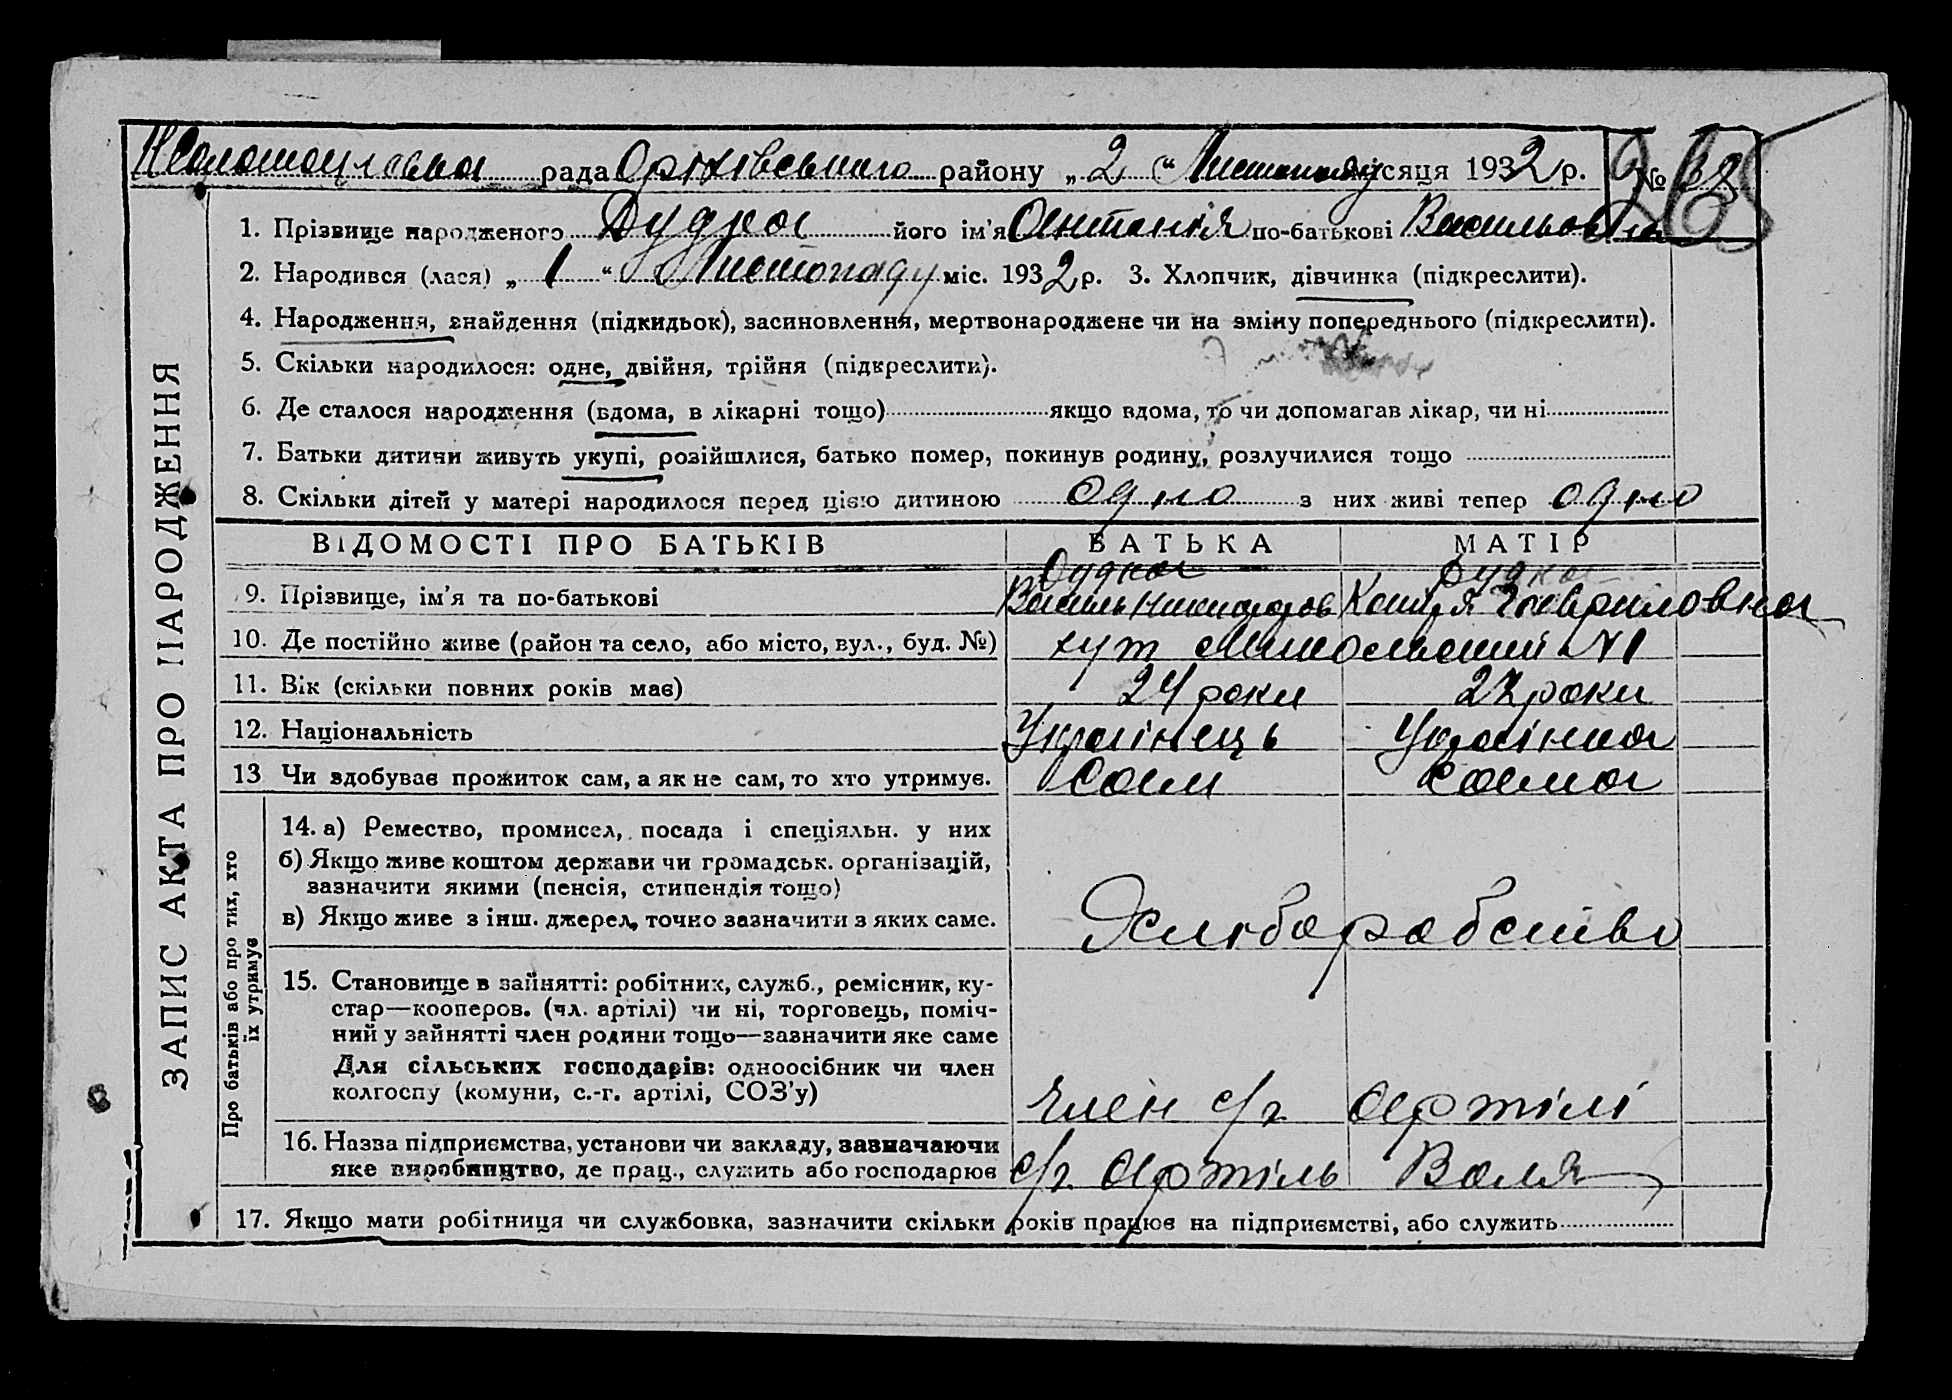 рада Оріхівського району „ 2 “ Листопаду місяця 1932 р. №
1. Прізвище народженого Дудка його ім'я Антонія по-батькові Васильовна
2. Народився (лася) „ 1 “ Листопаду міс. 1932 р. 3. Хлопчик, дівчинка (підкреслити).
4. Народження, знайдення (підкидьок), засиновлення, мертвонароджене чи на зміну попереднього (підкреслити).
5. Скільки народилося: одне, двійня, трійня (підкреслити).
6. Де сталося народження (вдома, в лікарні тощо) якщо вдома, то чи допомагав лікар, чи ні
7. Батьки дитини живуть укупі, розійшлися, батько помер, покинув родину, розлучилися тощо
8. Скільки дітей у матері народилося перед цією дитиною одно з них живі тепер одно
ЗАПИС АКТА ПРО НАРОДЖЕННЯ
ВІДОМОСТІ ПРО БАТЬКІВ БАТЬКА МАТІР
Дудка Дудка
9. Прізвище, ім'я та по-батькові Василь Никифоров Катря Гавриловна
10. Де постійно живе (район та село, або місто, вул., буд. №) хут №1
11. Вік (скільки повних років має) 24 роки 27 роки
12. Національність Українець Українка
13 Чи здобуває прожиток сам, а як не сам, то хто утримує. Сам Сама
Про батьків або про тих, хто
їх утримує
14. а) Ремество, промисел, посада і спеціяльн. у них
б) Якщо живе коштом держави чи громадськ. організацій,
зазначити якими (пенсія, стипендія тощо)
в) Якщо живе з інш. джерел, точно зазначити з яких саме. Хліборобство
15. Становище в зайнятті: робітник, служб., ремісник, ку-
стар—кооперов. (чл. артілі) чи ні, торговець, поміч-
ний у зайнятті член родини тощо—зазначити яке саме
Для сільських господарів: одноосібник чи член
колгоспу (комуни, с.-г. артілі, СОЗ'у) член с/г артілі
16. Назва підприємства, установи чи закладу, зазначаючи
яке виробництво, де прац., служить або господарює с/г артіль Воля
17. Якщо мати робітниця чи службовка, зазначити скільки років працює на підприємстві, або служить